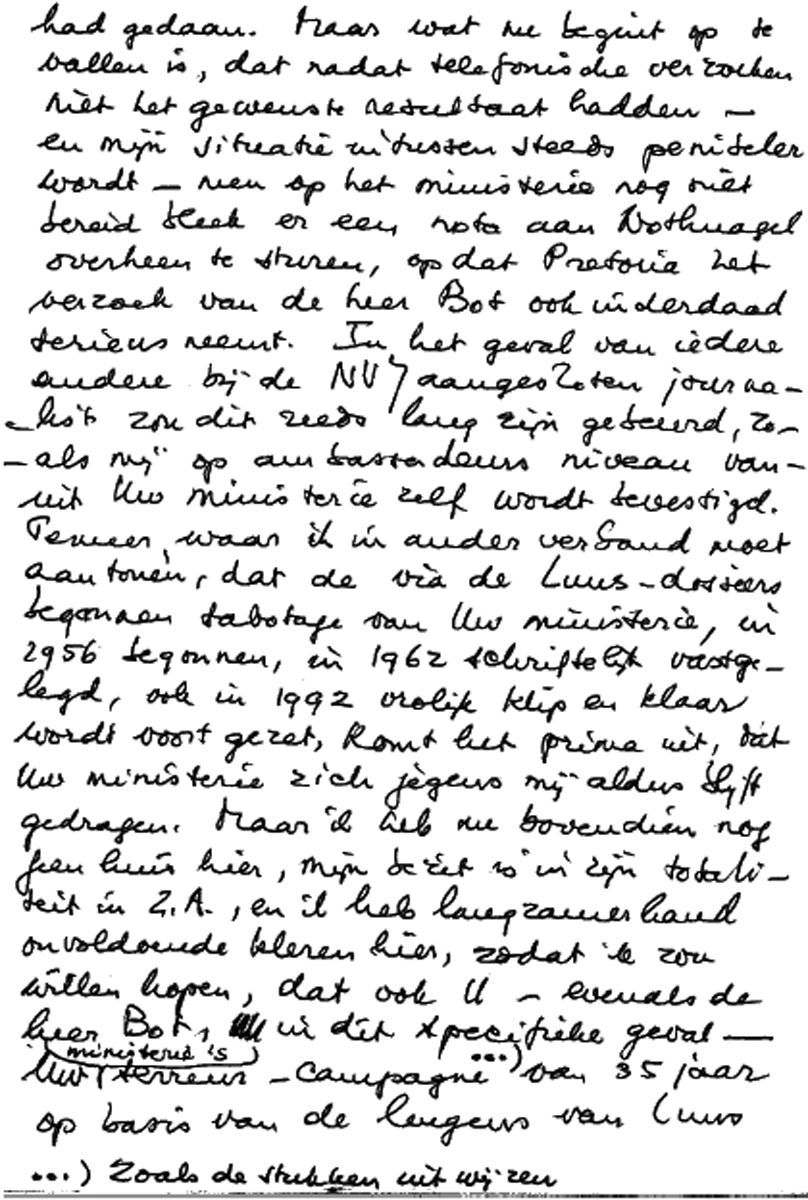 had gedaan. Maar wat nu begint op te
vallen is, dat nadat telefonische verzoeken
niet het gewenste resultaat hadden —
en mijn situatie intussen steeds penibeler
wordt — men op het ministerie nog niet
bereid bleek er een nota aan Nothnagel
overheen te sturen, opdat Pretoria het
verzoek van de heer Bot ook inderdaad
serieus neemt. In het geval van iedere
andere bij de NVJ aangesloten journa-
-list zou dit reeds lang zijn gebeurd, zo-
-als mij op ambassadeurs niveau van-
uit Uw ministerie zelf wordt bevestigd.
Temeer, waar ik in ander verband moet
aantonen, dat de via de Luns-dossiers
begonnen sabotage van Uw ministerie, in
1956 begonnen, in 1962 schriftelijk vastge-
legd, ook in 1992 vrolijk klip en klaar
wordt voort gezet, komt het prima uit, dat
Uw ministerie zich jegens mij aldus blijft
gedragen. Maar ik heb nu bovendien nog
geen huis hier, mijn bezit is in zijn totali-
teit in Z.A., en ik heb langzamerhand
onvoldoende kleren hier, zodat ik zou
willen hopen, dat ook U — evenals de
heer Bot, in dit specifieke geval —
ministerie's
Uw terreur-campagne ...) van 35 jaar
op basis van de leugens van Luns
...) Zoals de stukken uit wijzen